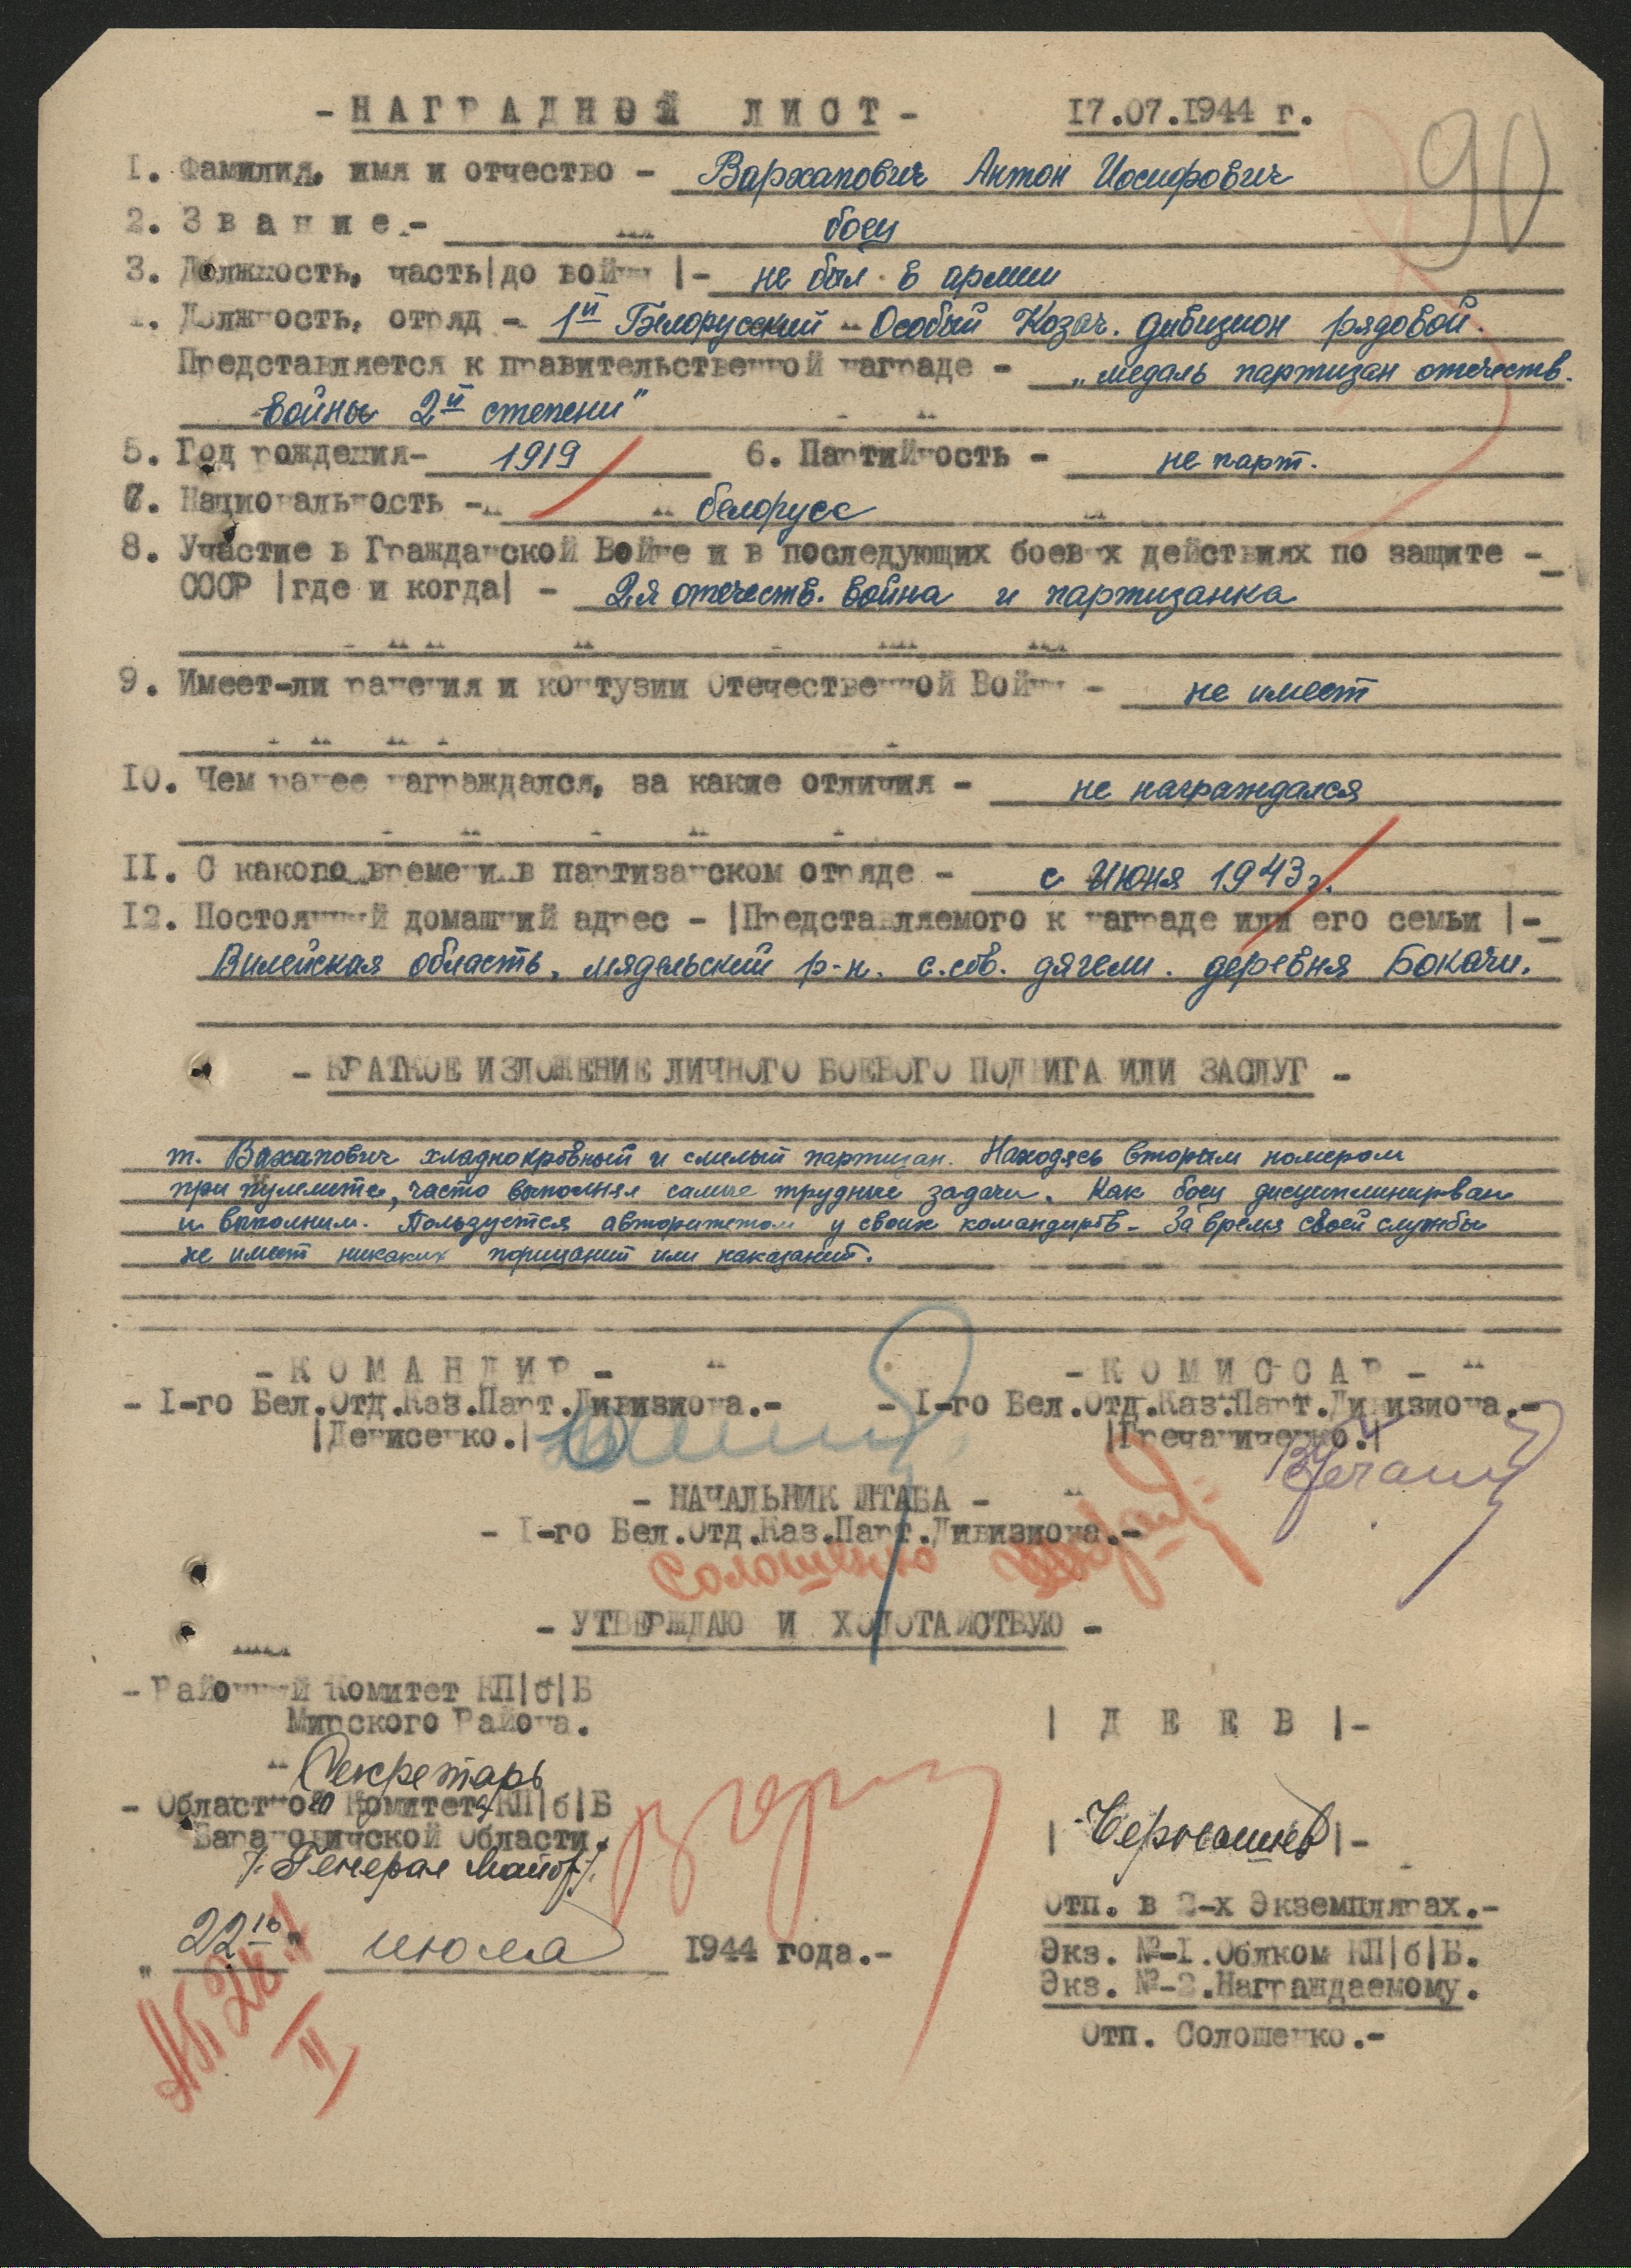 - НАГРАДНОЙ ЛИСТ - 17.07.1944 г.
90
1. Фамилия, имя и отчество - Вархапович Антон Иосифович
2. Звание.- боец
3. Должность, часть|до войны |- не был в армии
4. Должность, отряд - 1й Белорусский Особый Козач. дивизион рядовой.
Представляется к правительственной награде - „медаль партизан отечеств.
войны 2й степени"
5. Год рождения- 1919 6. Партийность - не парт.
7. Национальность - белорусс
8. Участие в Гражданской Войне и в последующих боевых действиях по защите -
СССР |где и когда| - 2я отечеств. война и партизанка
9. Имеет-ли ранения и контузии Отечественной Войны - не имеет
10. Чем ранее награждался, за какие отличия - не награждался
11. С какого времени в партизанском отряде - с Июня 1943г.
12. Постоянный домашний адрес - |Представляемого к награде или его семьи |-
Вилейская область, мядельский р-н. с.сов. дягели. деревня Бокачи.
- КРАТКОЕ ИЗЛОЖЕНИЕ ЛИЧНОГО БОЕВОГО ПОДВИГА ИЛИ ЗАСЛУГ -
т. Вахапович хладнокровный и смелый партизан. Находясь вторым номером
при пулемете, часто выполнял самые трудные задачи. Как боец дисциплинирован
и выполним. Пользуется авторитетом у своих командиров- За время своей службы
не имеет никаких порицаний или наказаний.
- КОМАНДИР - - КОМИССАР -
- 1-го Бел.Отд.Каз.Парт.Дивизиона.- - 1-го Бел.Отд.Каз.Парт.Дивизиона.-
|Денисенко.| |Гречаниченко.|
- НАЧАЛЬНИК ШТАБА -
- 1-го Бел.Отд.Каз.Парт.Дивизиона.-
Солошенко
- УТВЕРЖДАЮ И ХОДОТАЙСТВУЮ -
- Районный Комитет КП|б|Б
Мирского Района. | ДЕЕВ |-
Секретарь
- Областного Комитета КП|б|Б
Барановичской Области. | Чернышев |-
/. Генерал Майор/.
Отп. в 2-х Экземплярах.-
„22го" июля 1944 года.- Экз. №-1.Обком КП|б|Б.
Экз. №-2.Награждаемому.
Отп. Солошенко.-
II